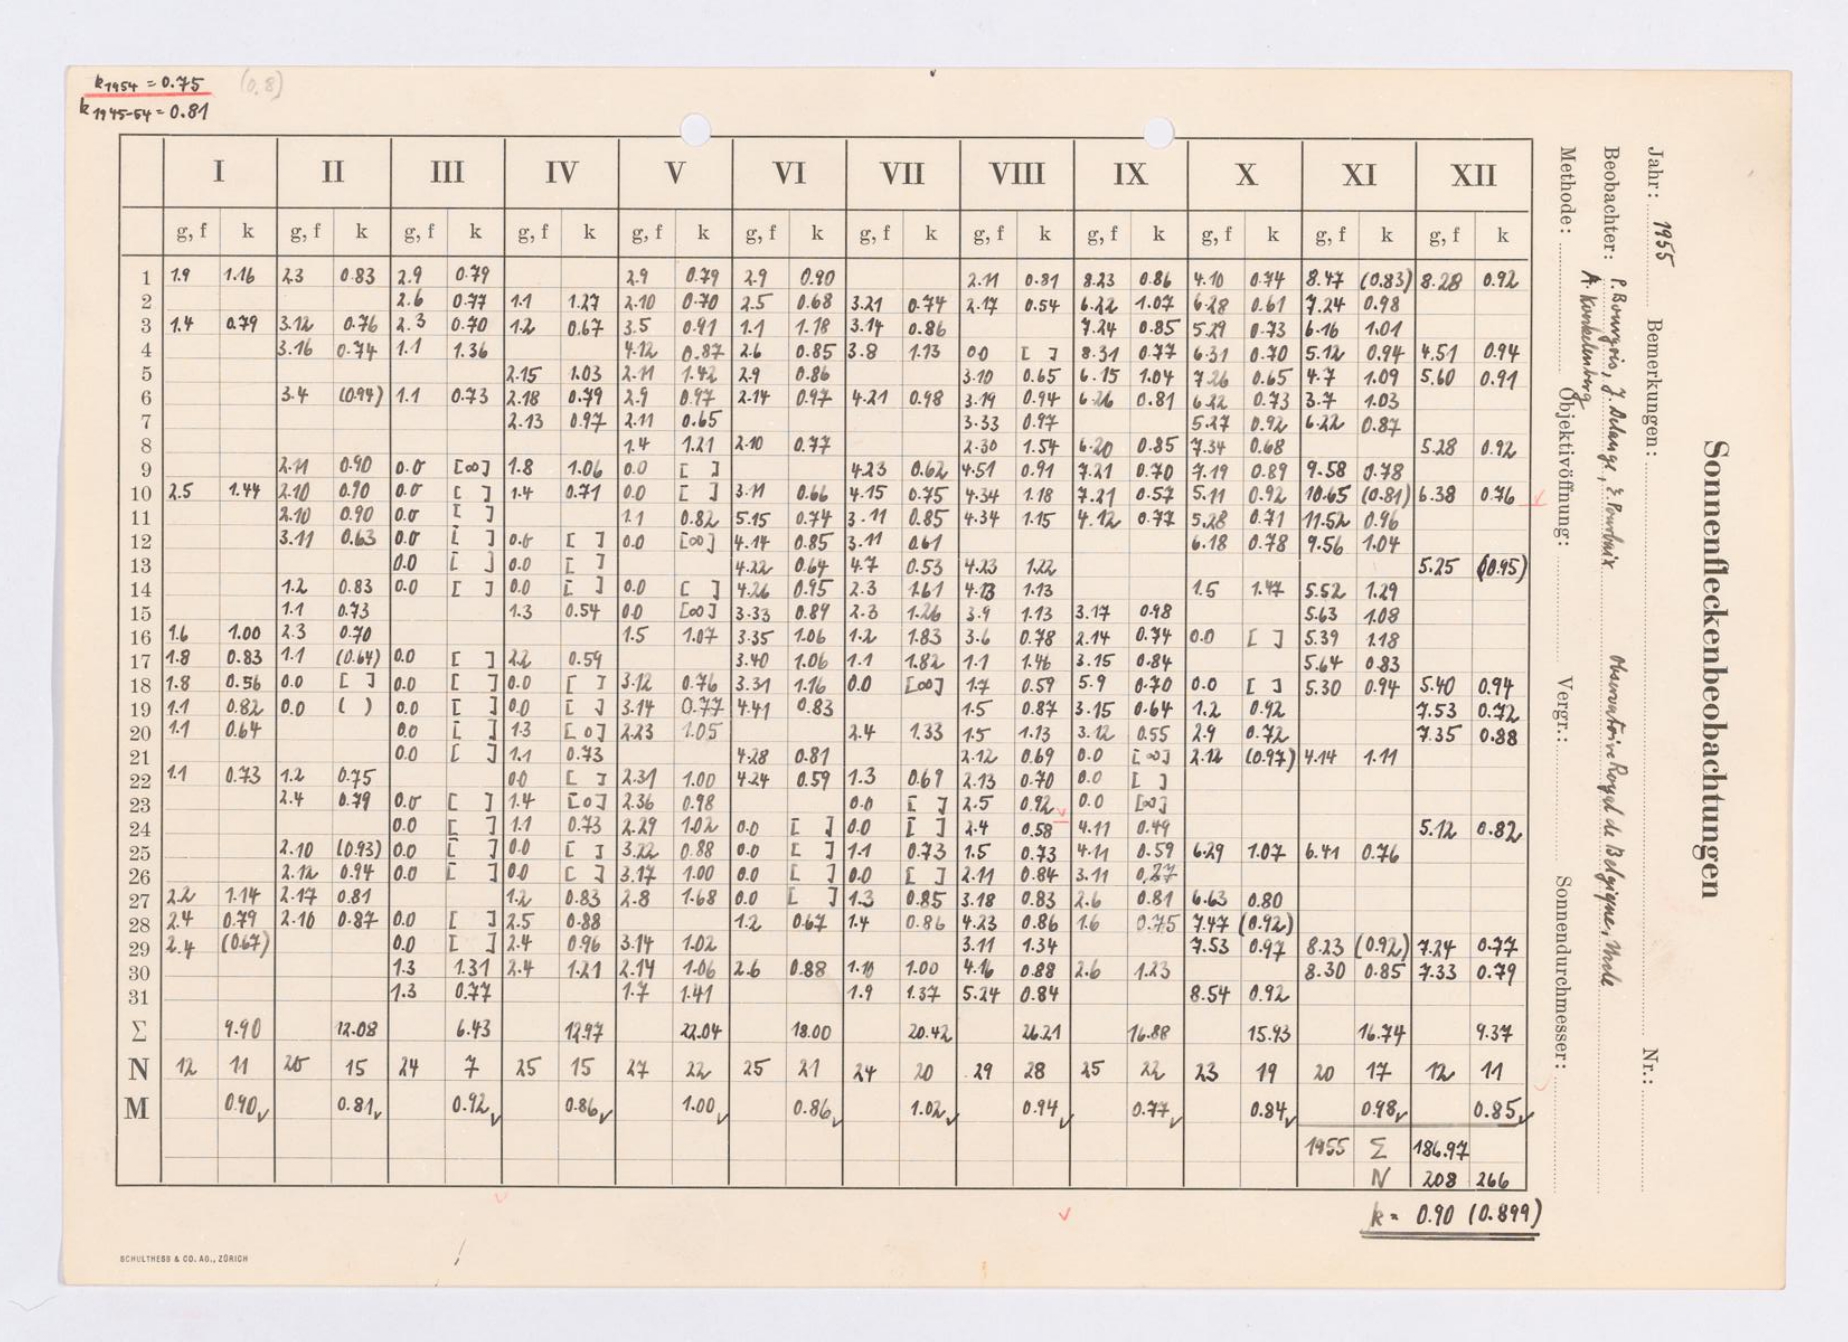 k1954 = 0.75 (0.8)
k1945-54 = 0.81
Sonnenfleckenbeobachtungen
Jahr: 1955 Bemerkungen: Nr.:
Beobachter: P. Bourgeois, J. Observatoire Royal de Belgique, Uccle
A. Koeckelenbergh
Methode: Objektivöffnung: Vergr.: Sonnendurchmesser:
I II III IV V VI VII VIII IX X XI XII
g, f k g, f k g, f k g, f k g, f k g, f k g, f k g, f k g, f k g, f k g, f k g, f k
1 1.9 1.16 2.3 0.83 2.9 0.79 2.9 0.79 2.9 0.90 2.11 0.81 8.23 0.86 4.10 0.74 8.47 (0.83) 8.28 0.92
2 2.6 0.77 1.1 1.27 2.10 0.70 2.5 0.68 3.21 0.74 2.17 0.54 6.22 1.07 6.28 0.61 7.24 0.98
3 1.4 0.79 3.12 0.76 2.3 0.70 1.2 0.67 3.5 0.91 1.1 1.18 3.14 0.86 7.24 0.85 5.29 0.73 6.16 1.01
4 3.16 0.74 1.1 1.36 4.12 0.87 2.6 0.85 3.8 1.13 0.0 [ ] 8.31 0.77 6.31 0.70 5.12 0.94 4.51 0.94
5 2.15 1.03 2.11 1.42 2.9 0.86 3.10 0.65 6.15 1.04 7.26 0.65 4.7 1.09 5.60 0.91
6 3.4 (0.94) 1.1 0.73 2.18 0.79 2.9 0.97 2.14 0.97 4.21 0.98 3.19 0.94 6.26 0.81 6.22 0.73 3.7 1.03
7 2.13 0.97 2.11 0.65 3.33 0.97 5.27 0.92 6.22 0.87
8 1.4 1.21 2.10 0.77 2.30 1.54 6.20 0.85 7.34 0.68 5.28 0.92
9 2.11 0.90 0.0 [∞] 1.8 1.06 0.0 [ ] 4.23 0.62 4.51 0.91 7.21 0.70 7.19 0.89 9.58 0.78
10 2.5 1.44 2.10 0.90 0.0 [ ] 1.4 0.71 0.0 [ ] 3.11 0.66 4.15 0.75 4.34 1.18 7.21 0.57 5.11 0.92 10.65 (0.81) 6.38 0.76
11 2.10 0.90 0.0 [ ] 1.1 0.82 5.15 0.74 3.11 0.85 4.34 1.15 4.12 0.77 5.28 0.71 11.52 0.96
12 3.11 0.63 0.0 [ ] 0.0 [ ] 0.0 [∞] 4.14 0.85 3.11 0.61 6.18 0.78 9.56 1.04
13 0.0 [ ] 0.0 [ ] 4.22 0.64 4.7 0.53 4.23 1.22 5.25 (0.95)
14 1.2 0.83 0.0 [ ] 0.0 [ ] 0.0 [ ] 4.26 0.95 2.3 1.61 4.13 1.13 1.5 1.47 5.52 1.29
15 1.1 0.73 1.3 0.54 0.0 [∞] 3.33 0.89 2.3 1.26 3.9 1.13 3.17 0.98 5.63 1.08
16 1.6 1.00 2.3 0.70 1.5 1.07 3.35 1.06 1.2 1.83 3.6 0.78 2.14 0.74 0.0 [ ] 5.39 1.18
17 1.8 0.83 1.1 (0.64) 0.0 [ ] 2.2 0.59 3.40 1.06 1.1 1.82 1.1 1.46 3.15 0.84 5.64 0.83
18 1.8 0.56 0.0 [ ] 0.0 [ ] 0.0 [ ] 3.12 0.76 3.31 1.16 0.0 [∞] 1.7 0.59 5.9 0.70 0.0 [ ] 5.30 0.94 5.40 0.94
19 1.1 0.82 0.0 ( ) 0.0 [ ] 0.0 [ ] 3.14 0.77 4.41 0.83 1.5 0.87 3.15 0.64 1.2 0.92 7.53 0.72
20 1.1 0.64 0.0 [ ] 1.3 [0] 2.23 1.05 2.4 1.33 1.5 1.13 3.12 0.55 2.9 0.72 7.35 0.88
21 0.0 [ ] 1.1 0.73 4.28 0.81 2.12 0.69 0.0 [∞] 2.12 (0.97) 4.14 1.11
22 1.1 0.73 1.2 0.75 0.0 [ ] 2.31 1.00 4.24 0.59 1.3 0.69 2.13 0.70 0.0 [ ]
23 2.4 0.79 0.0 [ ] 1.4 [0] 2.36 0.98 0.0 [ ] 2.5 0.92 0.0 [∞]
24 0.0 [ ] 1.1 0.73 2.29 1.02 0.0 [ ] 0.0 [ ] 2.4 0.58 4.11 0.49 5.12 0.82
25 2.10 (0.93) 0.0 [ ] 0.0 [ ] 3.22 0.88 0.0 [ ] 1.1 0.73 1.5 0.73 4.11 0.59 6.29 1.07 6.41 0.76
26 2.12 0.94 0.0 [ ] 0.0 [ ] 3.17 1.00 0.0 [ ] 0.0 [ ] 2.11 0.84 3.11 0.27
27 2.2 1.14 2.17 0.81 1.2 0.83 2.8 1.68 0.0 [ ] 1.3 0.85 3.18 0.83 2.6 0.81 6.63 0.80
28 2.4 0.79 2.10 0.87 0.0 [ ] 2.5 0.88 1.2 0.67 1.4 0.86 4.23 0.86 1.6 0.75 7.47 (0.92)
29 2.4 (0.67) 0.0 [ ] 2.4 0.96 3.14 1.02 3.11 1.34 7.53 0.97 8.23 (0.92) 7.24 0.77
30 1.3 1.31 2.4 1.21 2.14 1.06 2.6 0.88 1.10 1.00 4.16 0.88 2.6 1.23 8.30 0.85 7.33 0.79
31 1.3 0.77 1.7 1.41 1.9 1.37 5.24 0.84 8.54 0.92
Σ 9.90 12.08 6.43 12.97 22.04 18.00 20.42 26.21 16.88 15.93 16.74 9.37
N 12 11 20 15 24 7 25 15 27 22 25 21 24 20 29 28 25 22 23 19 20 17 12 11
M 0.90 0.81 0.92 0.86 1.00 0.86 1.02 0.94 0.77 0.84 0.98 0.85
1955 Σ 186.97
N 208 266
k = 0.90 (0.899)
SCHULTHESS & CO. AG., ZÜRICH